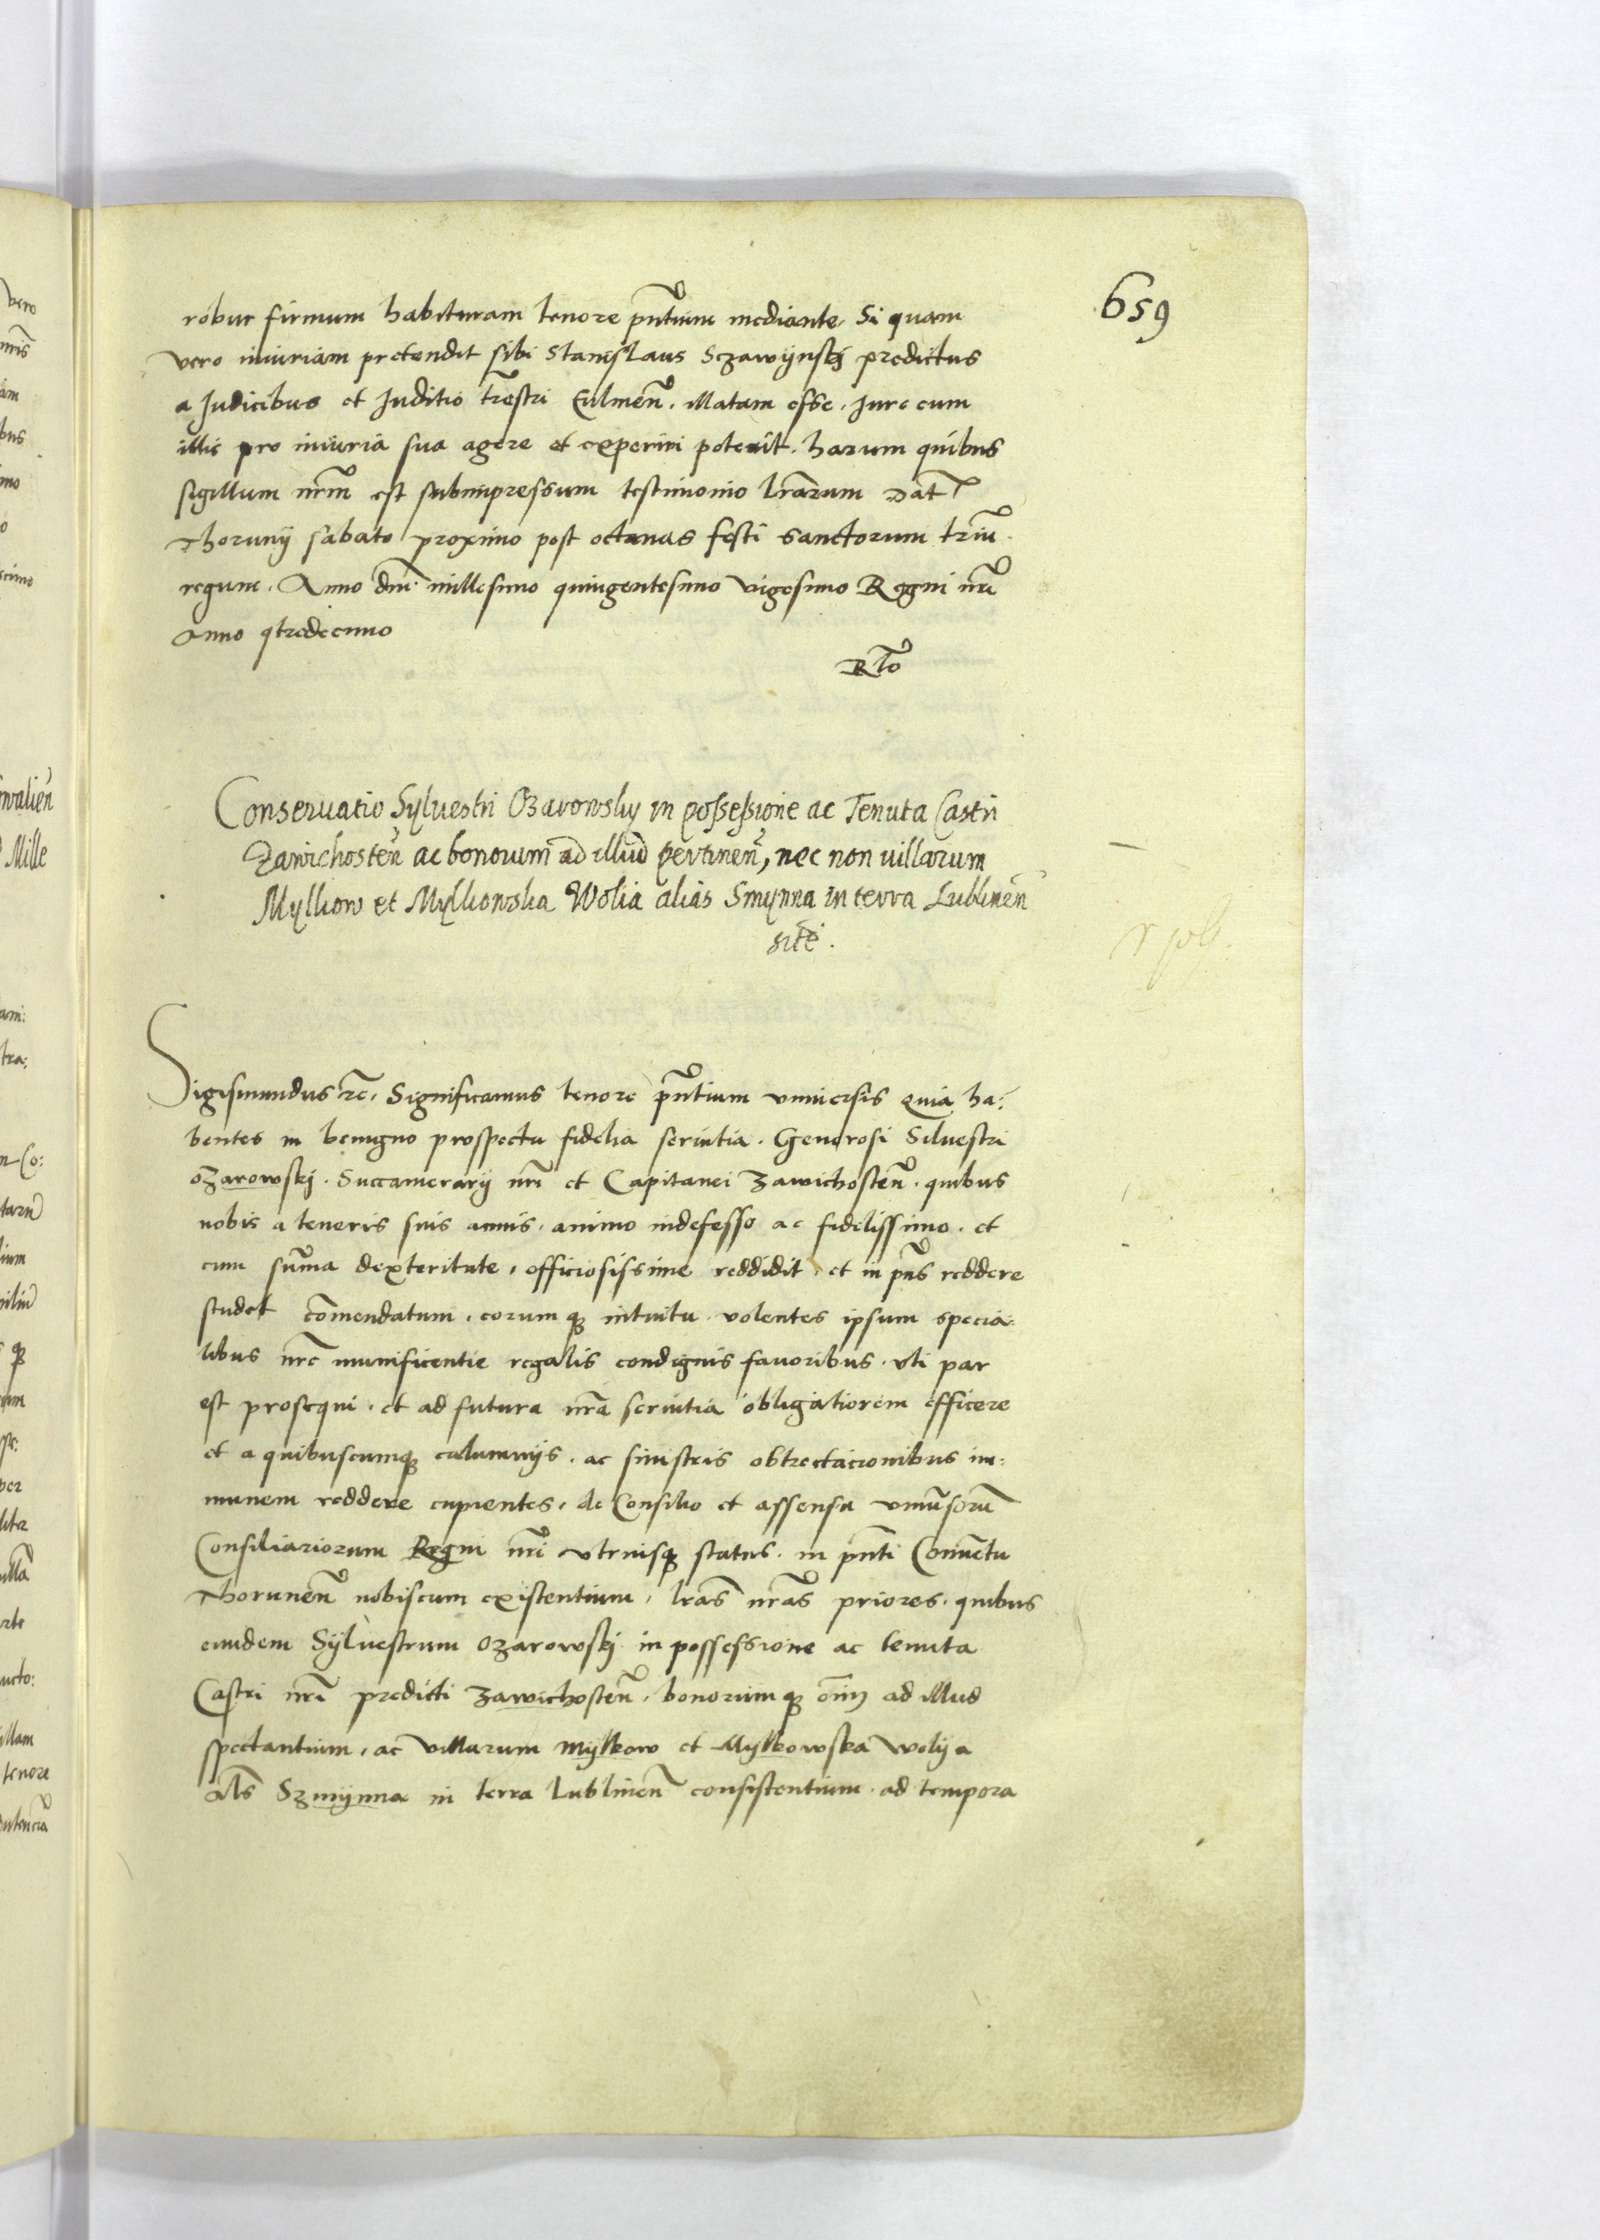 659
robur firmum habituram tenore pñtium mediante. Si quam
vero iniuriam pretendit sibi Stanislaus Sczawijnskj predictus
a Judicibus et Juditio trestri Culmeñ. illatam esse. Jure cum
illis pro iniuria sua agere et experiri poterit. harum quibus
sigillum nrm̃ est subimpressum testimonio lrarum Dat
Thorunij sabato proximo post octauas festi sanctorum triũ
regum. Anno dnĩ millesimo quingentesimo vigesimo Regni nrĩ
Anno qtredecimo
Rtõ
Conseruatio Sylvestri Ozarowsky in possessione ac Tenuta Castri
Zawichosteñ ac bonorum ad illud pertineñ, nec non villarum
Mylkow et Mylkowska Wolia alias Smynna in terra Lublineñ
sitẽ.
Sigismundus rc̃. Significamus tenore pñtium vniuersis Quia ha:
bentes in benigno prospectu fidelia seruitia. Generosi Siluestri
oZarowskj. Succamerarij nrĩ et Capitanei Zawichosteñ. quibus
nobis a teneris suis annis. animo indefesso ac fidelissimo. et
cum sum̃a dexteritate, officiosissime reddidit, et in pñs reddere
studet com̃endatum. eorumq intuitu volentes ipsum specia:
libus nrẽ munificentie regalis condignis fauoribus. vti par
est prosequi. et ad futura nrã seruitia obligatiorem efficere
et a quibuscumq calumnijs. ac sinistris obtrectacionibus im:
munem reddere cupientes, de Consilio et assensu vniũsorũ
Consiliariorum Regni nrĩ vtriusq status. in pñti Conuẽtu
Thoruneñ nobiscum existentium, lrãs nrãs priores. quibus
eundem Sÿluestrum oZarowskj in possessione ac tenuta
Castri nrĩ predicti Zawichosteñ. bonorumq om̃iũ ad illud
spectantium, ac villarum Mylkow et Mylkowska Wolija
als̃ Szmijnna in terra Lublineñ consistentium. ad tempora